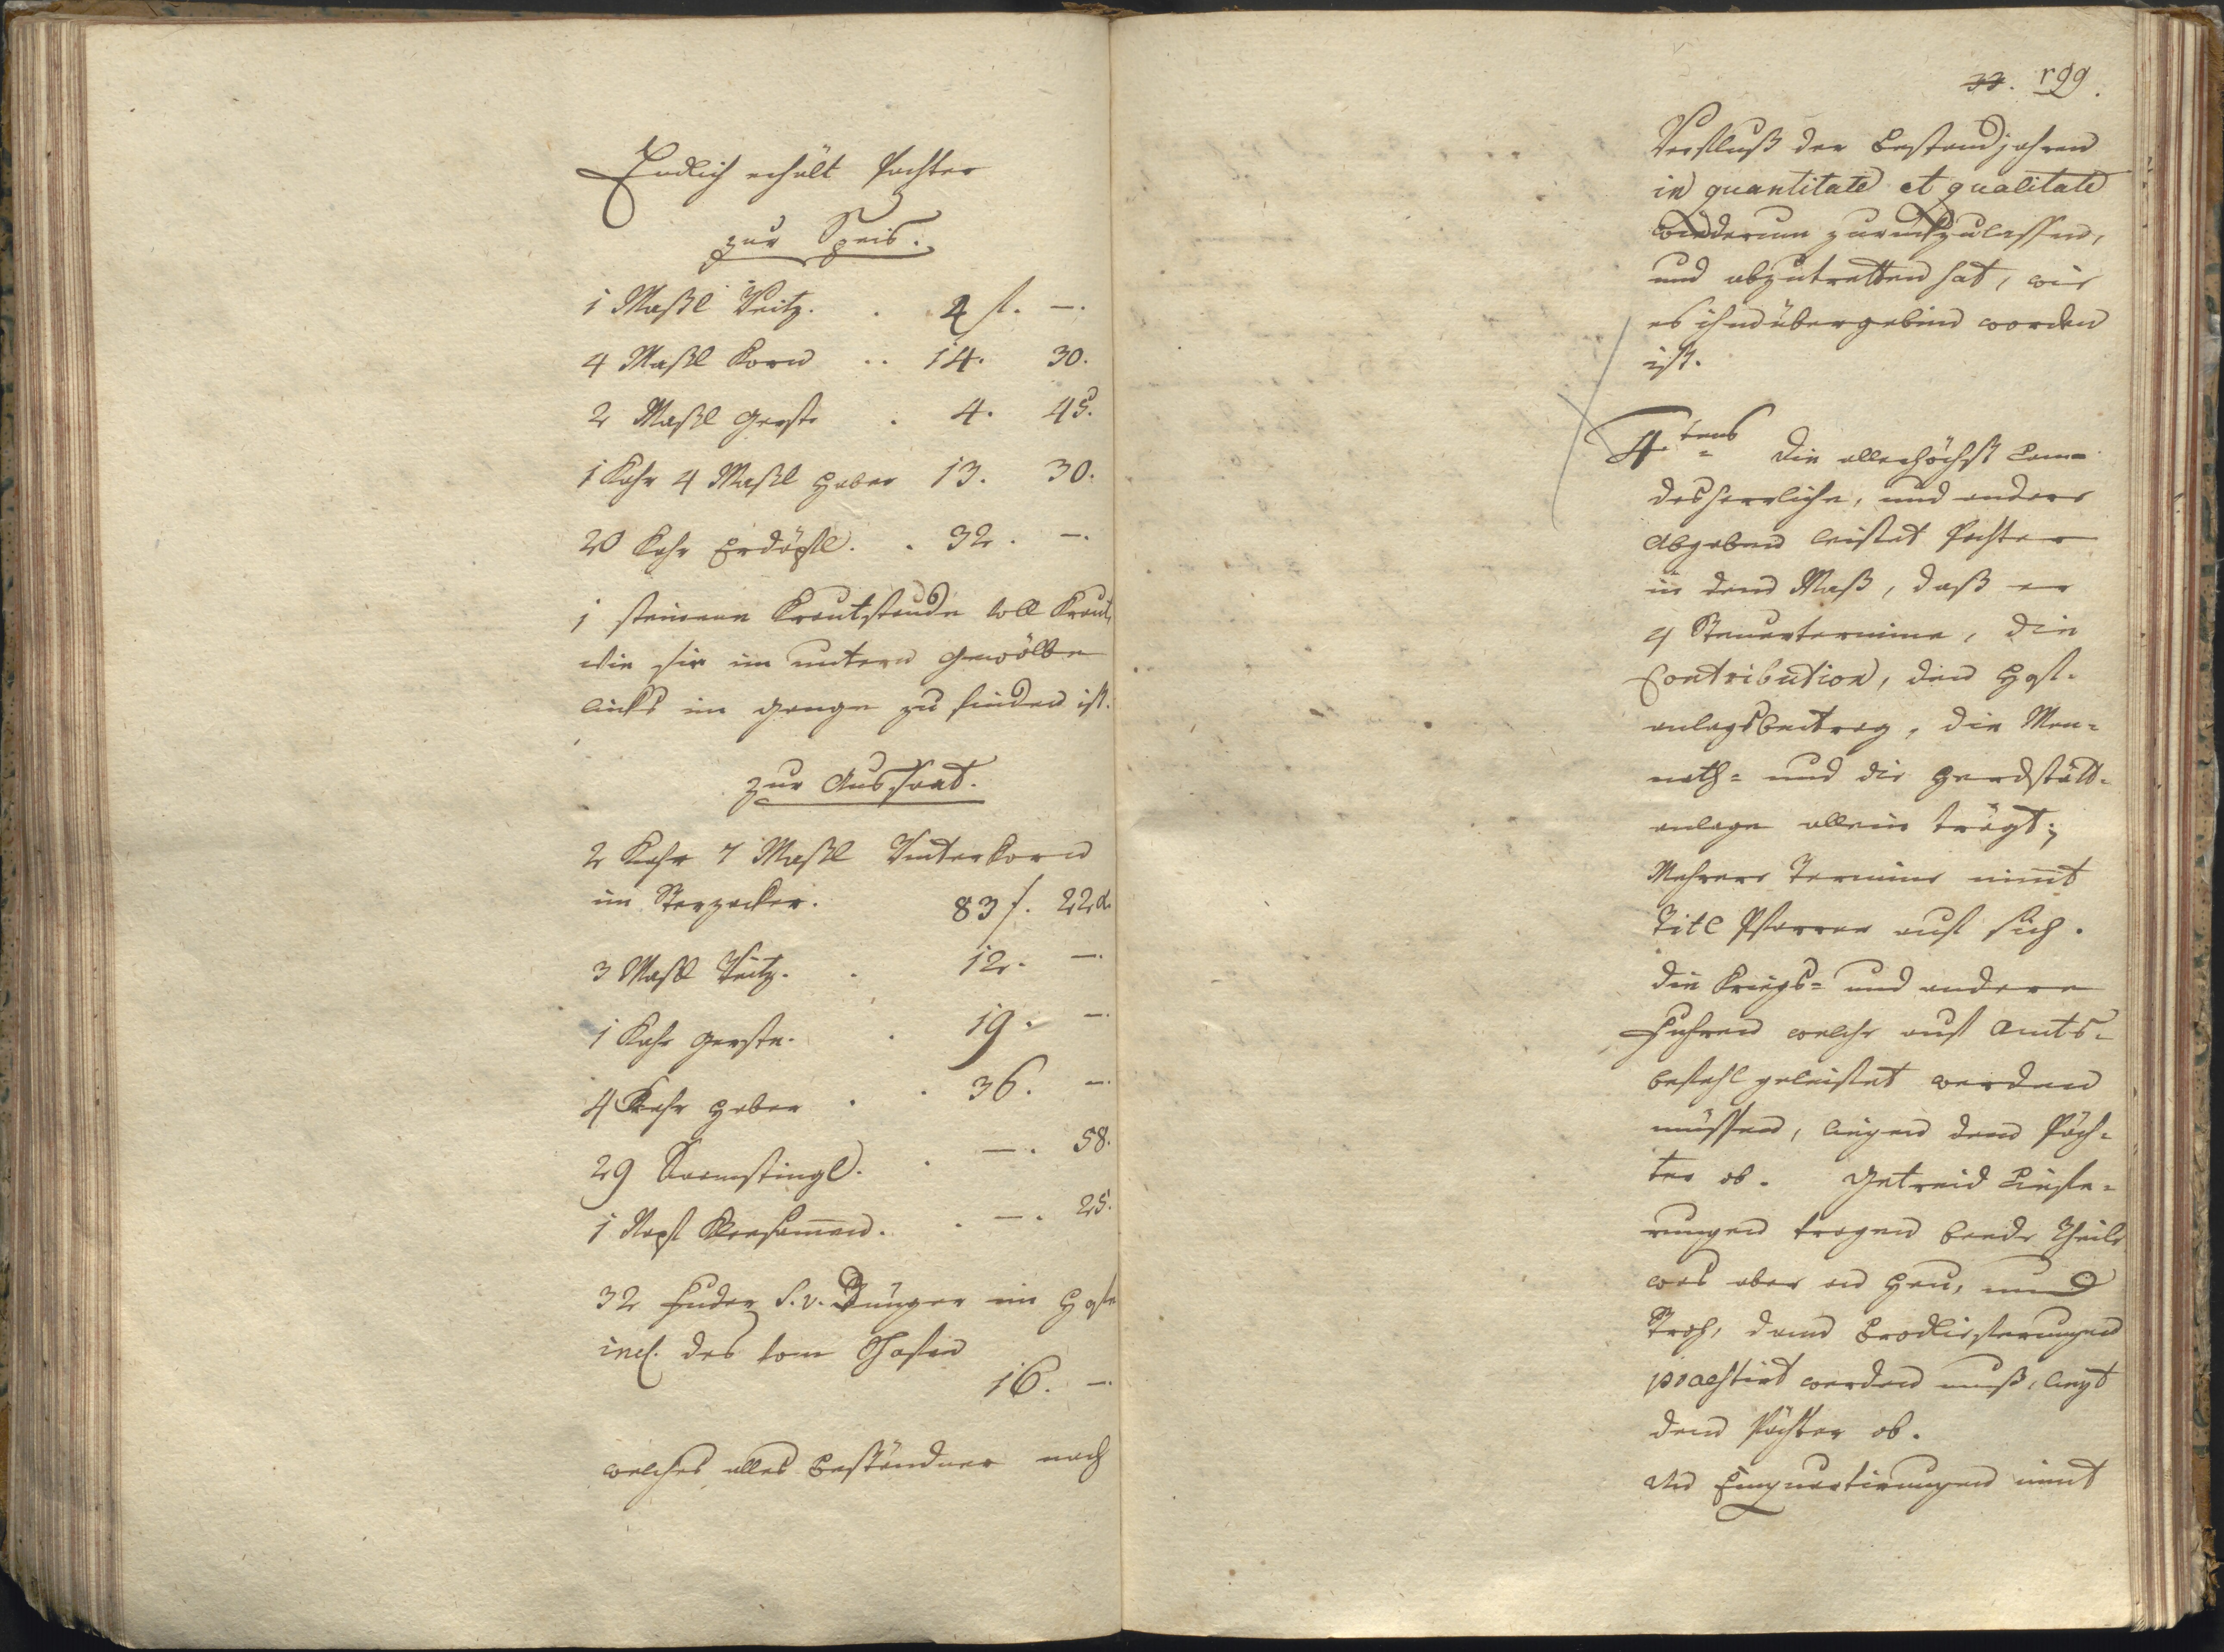 Endlich erhält Pachter
zur Speis.
1 Maßl Weitz. . 4 f. —.
4 Maßl Korn .. 14. 30.
2 Maßl Gerste . 4. 45.
1 Kahr 4 Maßl Haber 13. 30.
20 Kahr Erdäpfl. . 32. —.
1 steinerne Krautstande voll Kraut,
die sie im untern Gewölbe
links im Gange zu finden ist.
zur Aussaat.
2 Kahr 7 Maßl Winterkorn
im 83 f. 22 d.
3 Maßl Weitz. . 12. —.
1 Kahr Gerste. . 19. —.
4 Kahr Haber . . 36. —.
29 . —. 58.
1 Napf . . —. 25.
32 Fuder S.v. Dünger im
incl. des vom
16. —.
welches alles Beständner nach
33. 199.
Verfluß der Bestandjahren
in quantitate et qualitate
wiederum zurückzulassen,
und abzutretten hat, wie
es ihm übergeben worden
ist.
4.tens Die allerhöchst Lan=
desherrliche, und andere
Abgaben leistet Pachter
in dem Maß, daß er
4 Steuertermine, die
Contribution, den
anlagsbeitrag, die Mon=
nath= und die Herdstätt=
anlage allein trägt;
Mehrere Termine nimt
Titl Pfarrer auf sich.
Die Kriegs= und andere
Fuhren welche auf Amts=
befehl geleistet werden
müssen, liegen dem Päch=
ter ob. Getreid Liefe=
rungen tragen beede Theile
was aber an Heu, und
Stroh, dann Brodlieferungen
praestirt werden muß, liegt
dem Pächter ob.
An Einquartirungen nimt